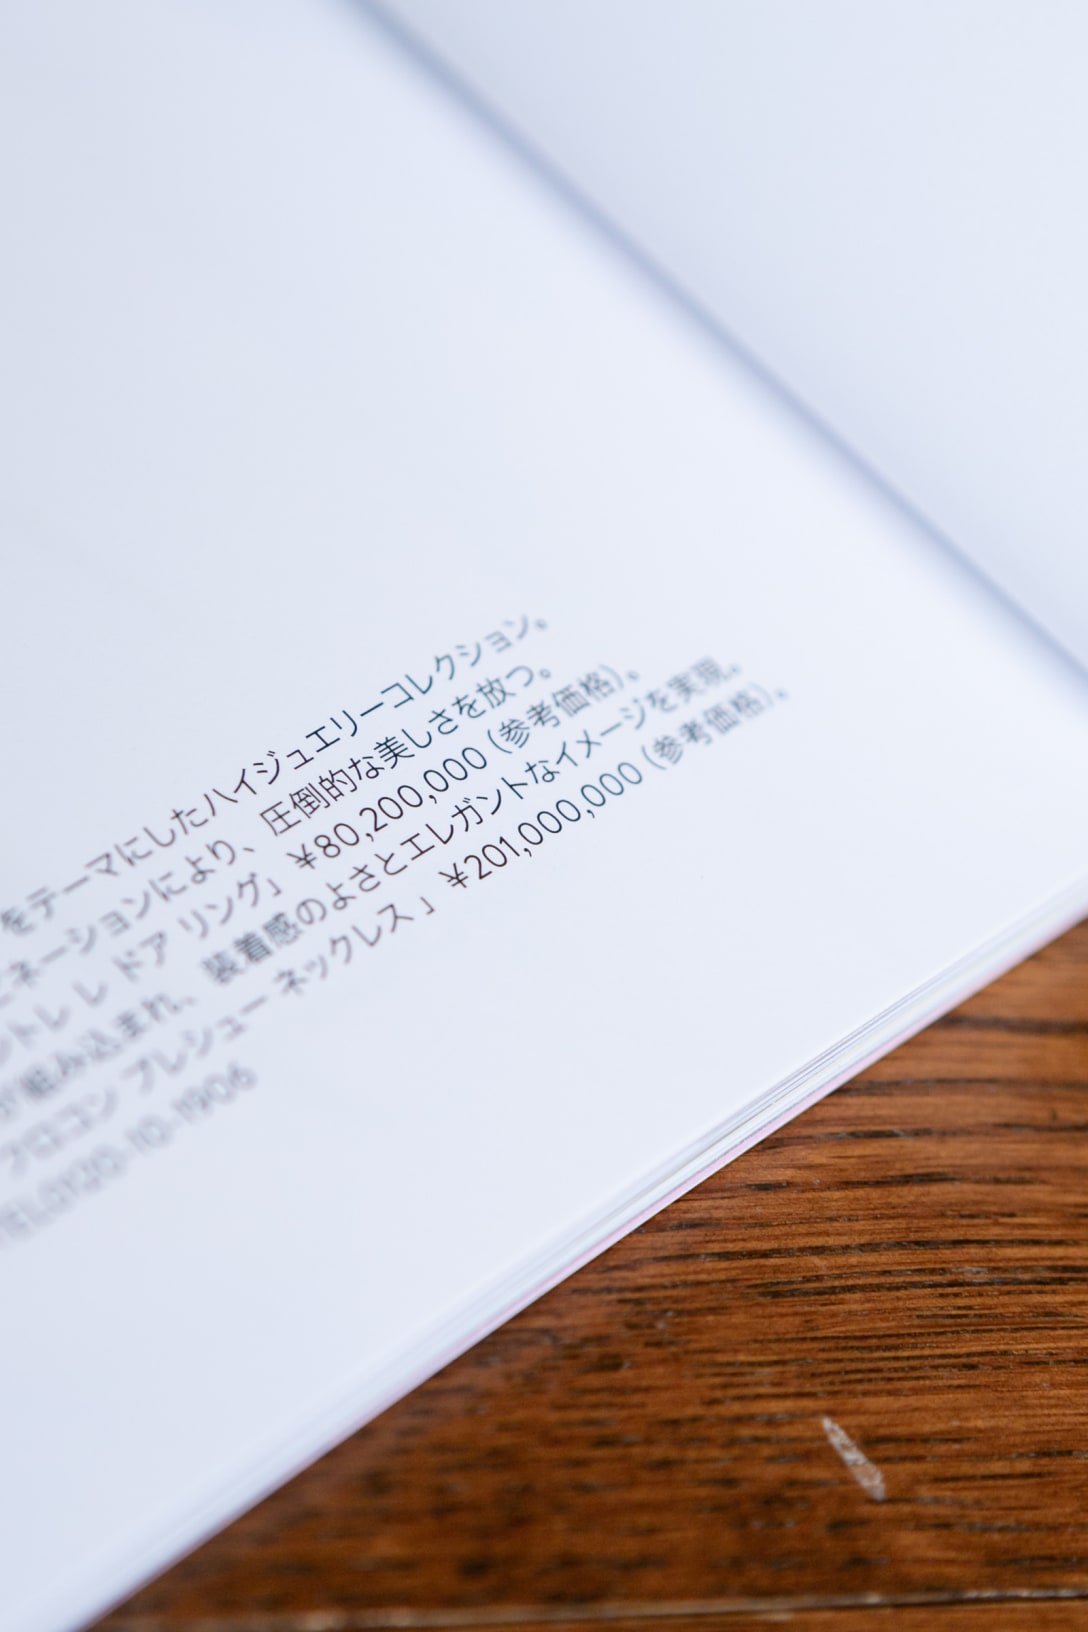 をテーマにしたハイジュエリーコレクション。
ネーションにより、圧倒的な美しさを放つ。
ントレ レ ドア リング」¥80,200,000（参考価格）。
が組み込まれ、装着感のよさとエレガントなイメージを実現。
フロコン プレシュー ネックレス」¥201,000,000（参考価格）。
TEL0120-10-1906